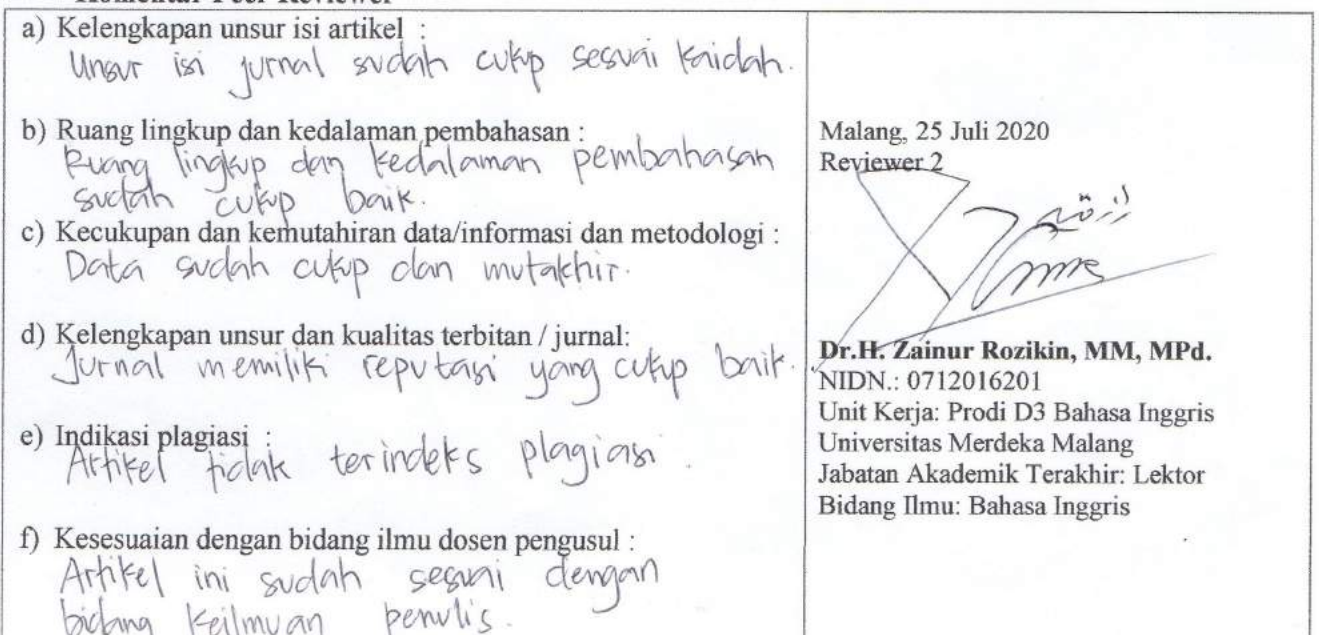 Komentar Peer Reviewer
a) Kelengkapan unsur isi artikel :
Unsur isi jurnal sudah cukup sesuai kaidah.
b) Ruang lingkup dan kedalaman pembahasan :
Ruang lingkup dan kedalaman pembahasan
sudah cukup baik.
c) Kecukupan dan kemutahiran data/informasi dan metodologi :
Data sudah cukup dan mutakhir.
d) Kelengkapan unsur dan kualitas terbitan / jurnal:
Jurnal memiliki reputasi yang cukup baik.
e) Indikasi plagiasi :
Artikel tidak terindeks plagiasi.
f) Kesesuaian dengan bidang ilmu dosen pengusul :
Artikel ini sudah sesuai dengan
bidang keilmuan penulis.
Malang, 25 Juli 2020
Reviewer 2
Dr.H. Zainur Rozikin, MM, MPd.
NIDN.: 0712016201
Unit Kerja: Prodi D3 Bahasa Inggris
Universitas Merdeka Malang
Jabatan Akademik Terakhir: Lektor
Bidang Ilmu: Bahasa Inggris